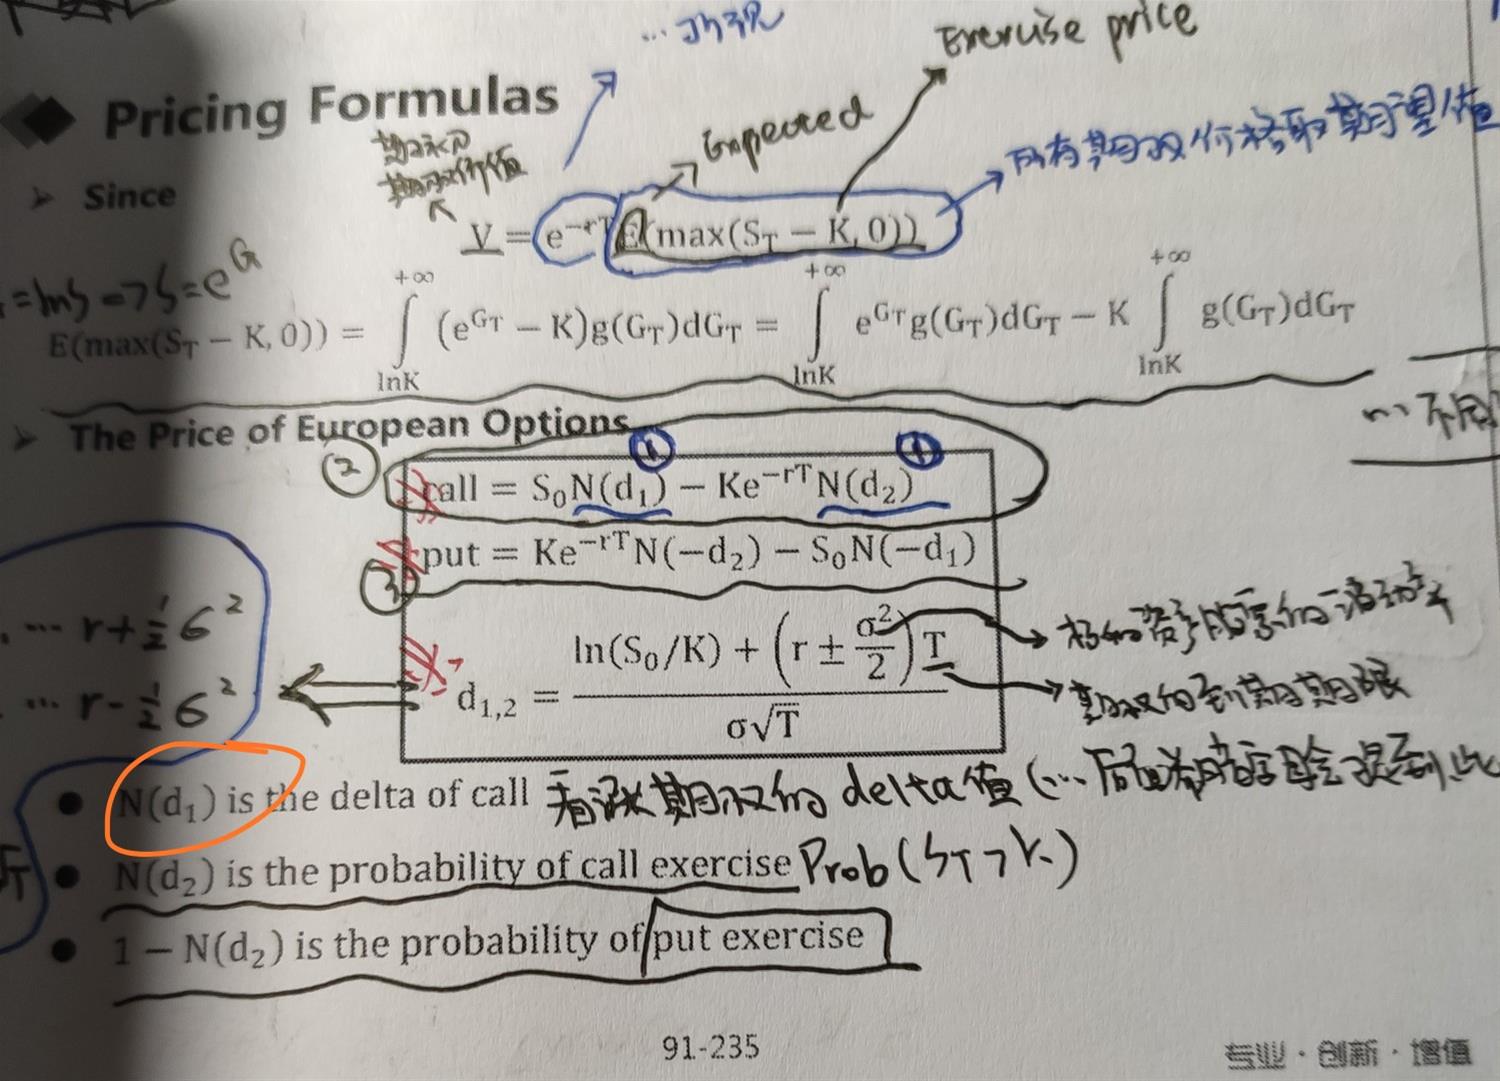 Exercise price
Pricing Formulas
Expected
所有期权价格取期望值
期权价值
Since
V = e^{-rT} E(max(S_T − K, 0))
= lnS => S = e^G
E(max(S_T − K, 0)) = ∫_{lnK}^{+∞} (e^{G_T} − K)g(G_T)dG_T = ∫_{lnK}^{+∞} e^{G_T}g(G_T)dG_T − K ∫_{lnK}^{+∞} g(G_T)dG_T
The Price of European Options
… 不同
② call = S_0N(d_1) − Ke^{−rT}N(d_2)
put = Ke^{−rT}N(−d_2) − S_0N(−d_1)
③
… r + ½σ²
… r - ½σ²
d_{1,2} = (ln(S_0/K) + (r ± σ²/2)T) / (σ√T)
期权的到期期限
N(d_1) is the delta of call 看涨期权的 delta 值 (…
N(d_2) is the probability of call exercise Prob (S_T > K)
1 − N(d_2) is the probability of put exercise
91-235
专业 · 创新 · 增值